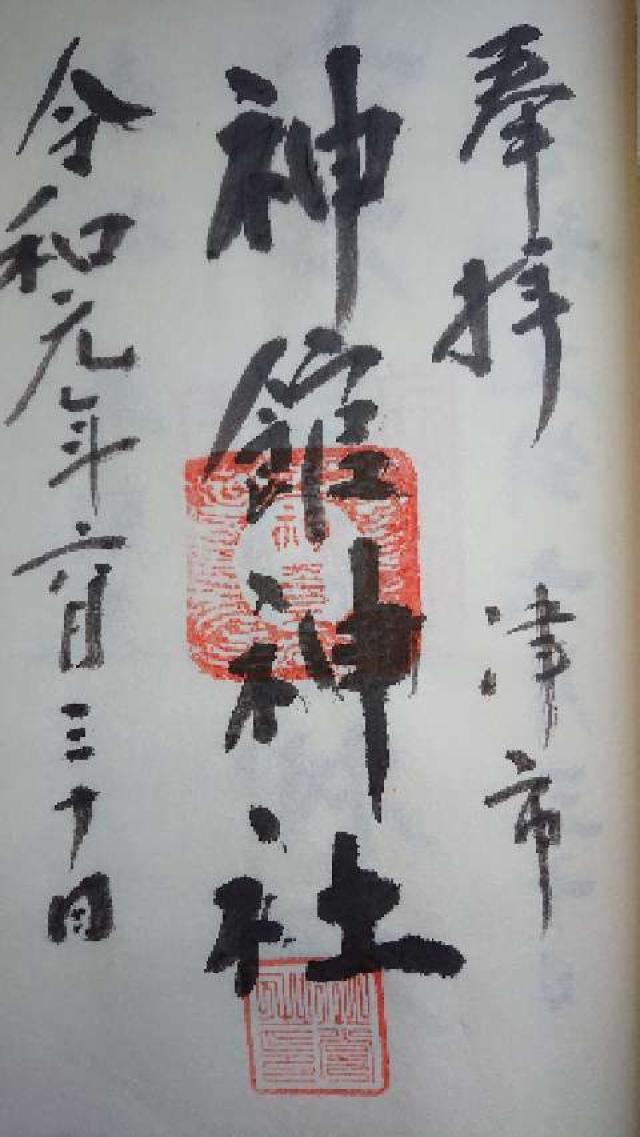 奉拝 津市
神館神社
令和元年六月三十日